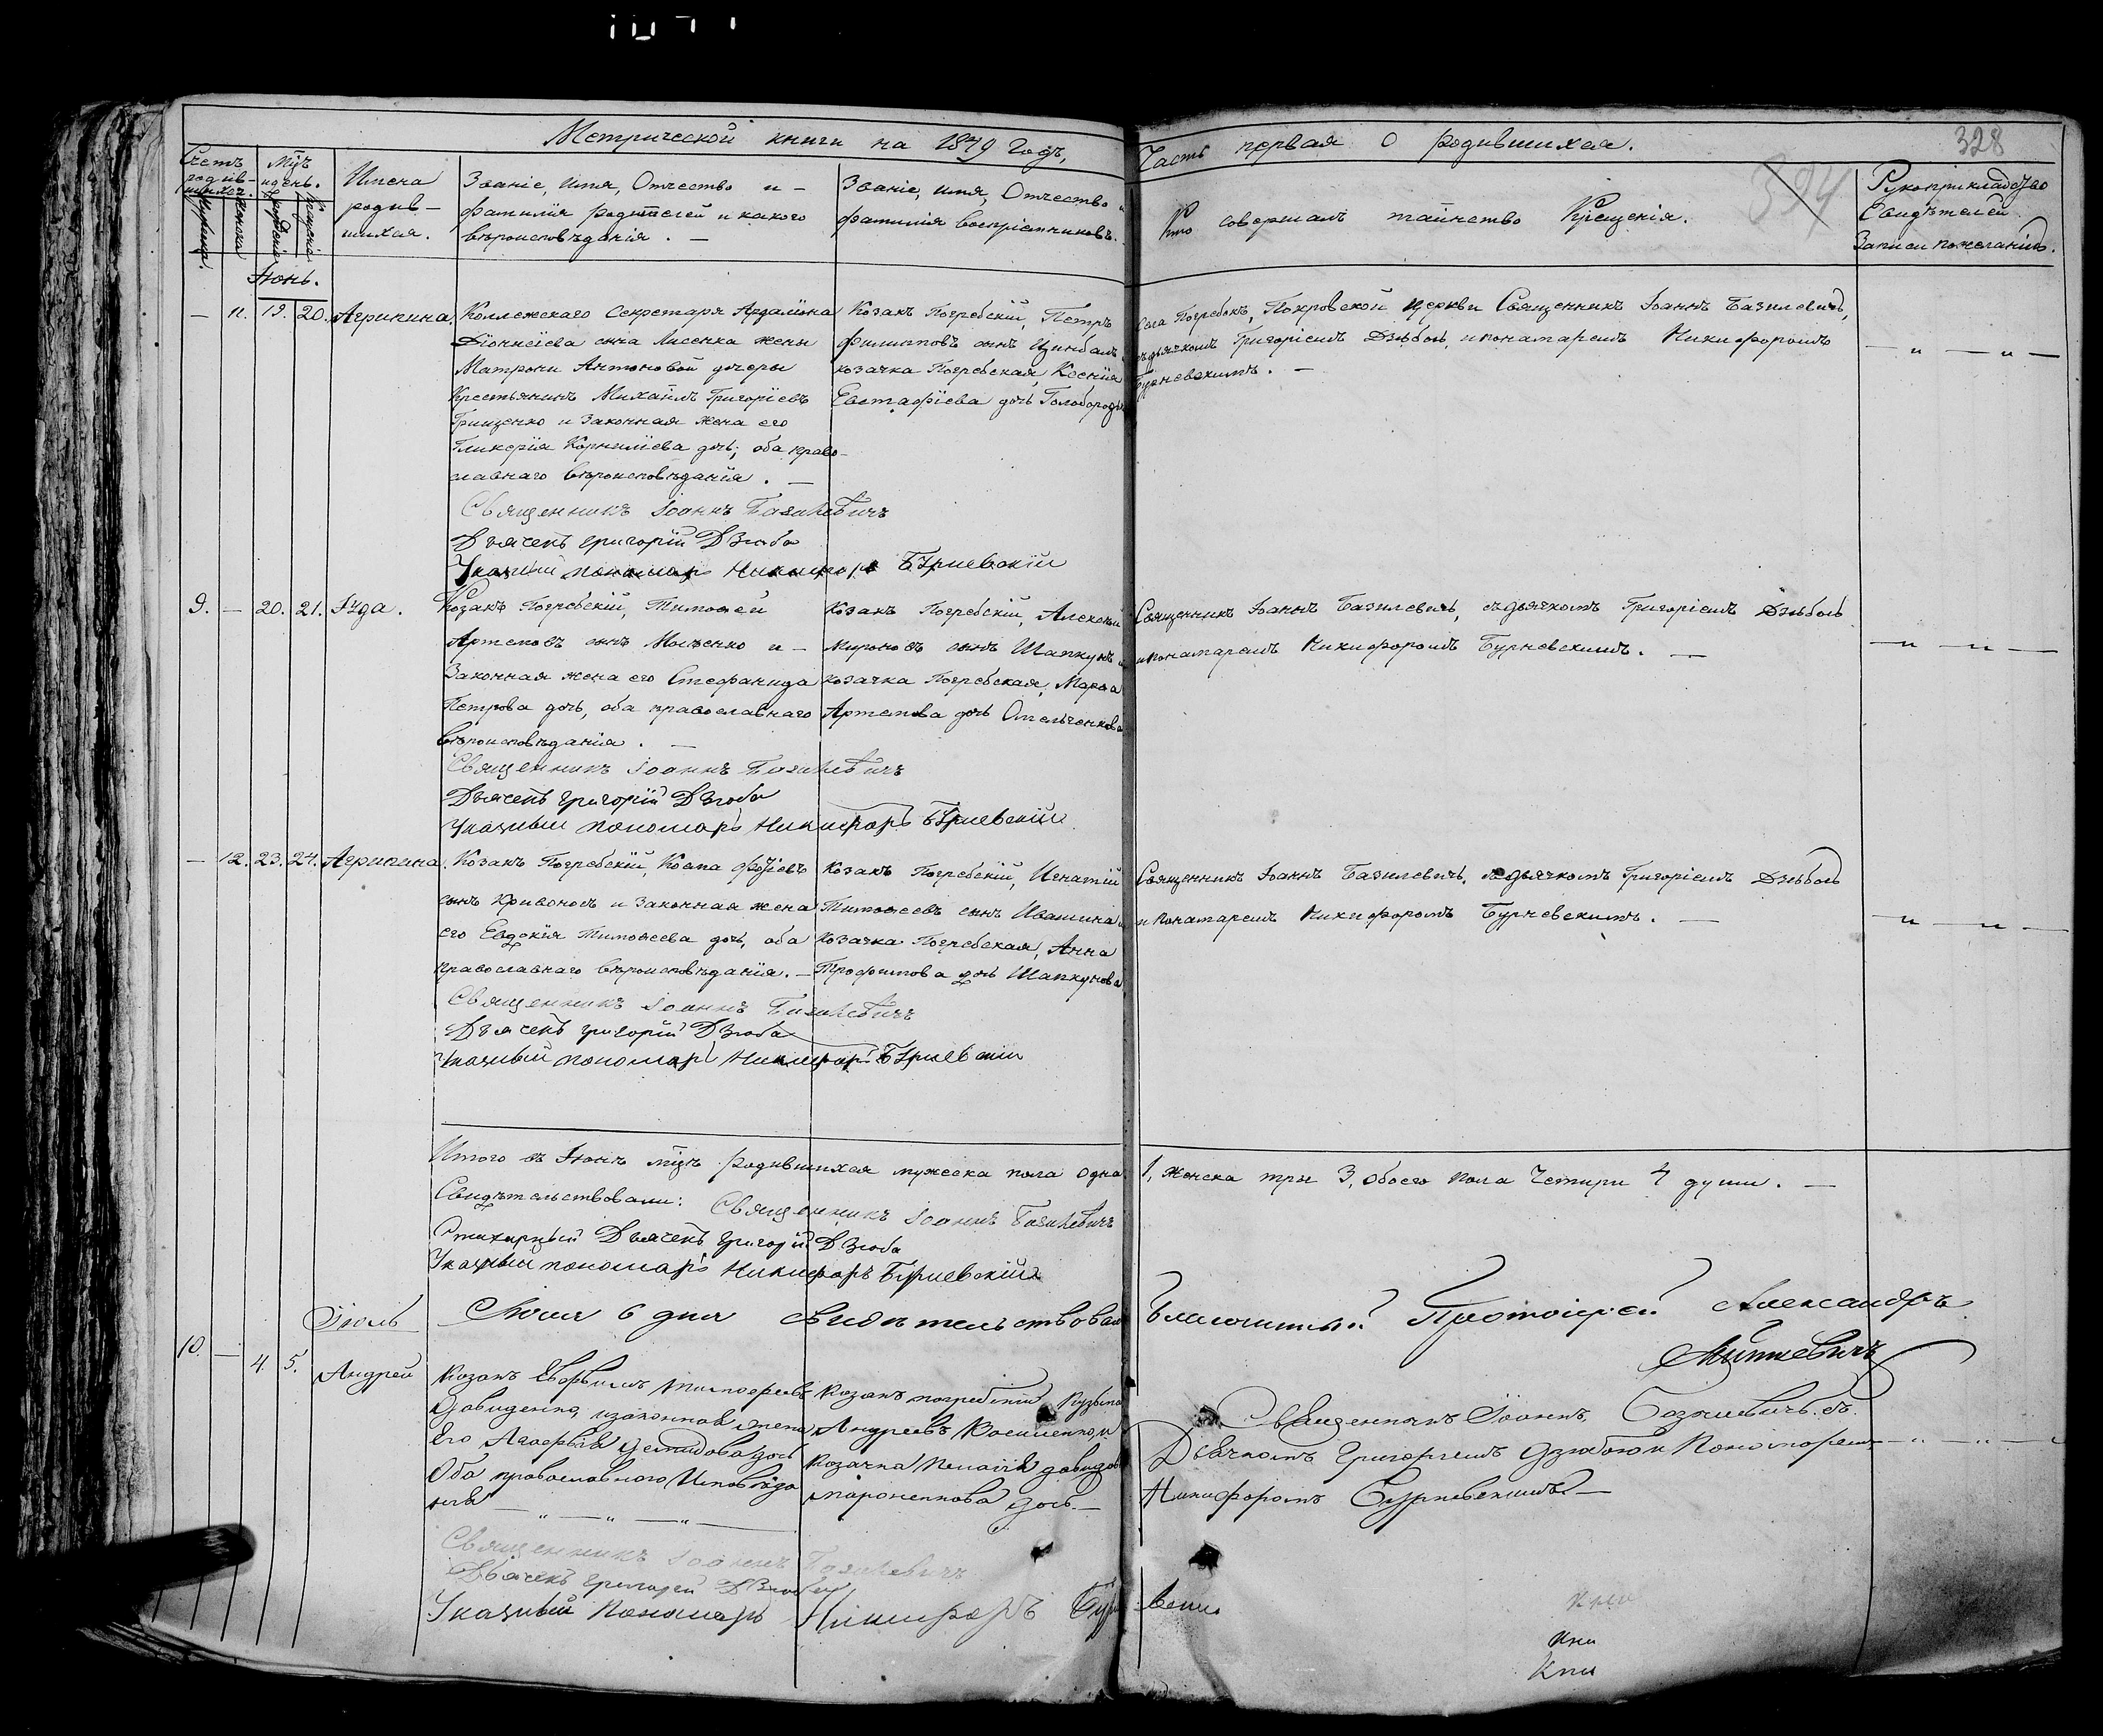 Метрической книги на 1879 Годъ,
Часть первая о родившихся.
328
394
Счетъ родив-шихся.
Мужеска. Женска
Мѣць и день.
рожденія крещенія
Имена
родив-
шихся.
Званіе, имя, Отчество и -
фамилія родителей и какого
вѣроисповѣданія. -
Званіе, имя, Отчество и
фамилія воспріемниковъ.
Кто совершалъ таинство Крещенія.
Рукоприкладство
Свидѣтелей
Записи пожеланію.
Іюнь.
— 11. 19. 20. Агрипина.
Коллежскаго Секретаря Ардаліона
Діонисіева сына Лисенка жены
Матрони Антоновой дочеры
Крестьянинъ Михаилъ Григоріевъ
Грищенко и Законная жена его
Гликерія Корниліева дочь, оба право-
славнаго вѣроисповѣданія. —
Козакъ Погребскій, Петръ
Филипповъ сынъ Цимбалъ
козачка Погребская, Ксенія
Евстафіева дочь Голобородь
Села Погребокъ, Покровской церкви Священникъ Іоаннъ Базилевичъ,
съ дьячкомъ Григоріемъ Дзюбою, и понамаремъ Никифоромъ
Бурневскимъ. —
— „ — „ —
Священникъ Іоаннъ Базилевичъ
Дьячекъ Григорій Дзюба
Указный пономарь Никифоръ Бурневскій
9. — 20. 21. Іуда.
Козакъ Погребскій, Тимофей
Артемовъ сынъ и —
Законная жена его Стефанида
Петрова дочь, оба православнаго
вѣроисповѣданія. —
Козакъ Погребскій, Алексѣй
Мироновъ сынъ Шапкунъ и
козачка Погребская, Марфа
Артемова дочь Омельченкова
Священникъ Іоаннъ Базилевичъ, съ дьячкомъ Григоріемъ Дзюбою
и понамаремъ Никифоромъ Бурневскимъ. —
— „ — „ —
Священникъ Іоаннъ Базилевичъ
Дьячекъ Григорій Дзюба
Указный пономарь Никифоръ Бурневскій
— 12. 23. 24. Агрипина.
Козакъ Погребскій, Косма
сынъ Кривоносъ и Законная жена
его Евдокія Тимофеева дочь, оба
православнаго вѣроисповѣданія. —
Козакъ Погребскій, Игнатій
Тимофеевъ сынъ Ивашина и
козачка Погребская, Анна
Трофимова дочь Шапкунова
Священникъ Іоаннъ Базилевичъ, съ дьячкомъ Григоріемъ Дзюбою
и понамаремъ Никифоромъ Бурневскимъ. —
— „ — „ —
Священникъ Іоаннъ Базилевичъ
Дьячекъ Григорій Дзюба
Указный пономарь Никифоръ Бурневскій
Итого въ Іюнѣ мѣцѣ родившихся мужеска пола одна 1, женска три 3, обоего пола Четири 4 души. —
Свидѣтельствовали: Священникъ Іоаннъ Базилевичъ
Стихарный Дьячекъ Григорій Дзюба
Указный пономарь Никифоръ Бурневскій
Іюля 6 дня свидѣтельствовалъ Благочинный Протоіерей Александръ
Іюль
10. — 4. 5. Андрей
Козакъ Тимофеевъ
Давиденко, и законная жена
Его Агафія Демидова дочь
Оба православного Исповѣда
нія — „ — „ — „ —
Козакъ погребскій Кузьма
Андреевъ и
Козачка Пелагія давидова
дочь. —
Священникъ Іоаннъ Базилевичъ съ
Дьячкомъ Григоріемъ Дзюбою и Пономоремъ
Никифоромъ Бурневскимъ —
— „ — „ —
Священникъ Іоаннъ Базилевичъ
Дьячекъ Григорій Дзюба
Указный Пономарь Никифоръ Бурневскій